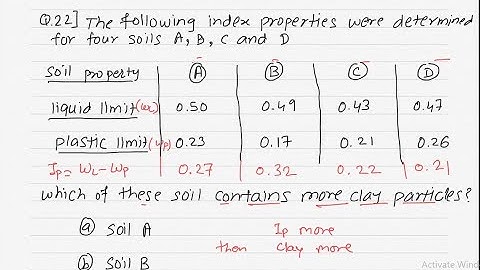 Q.22] The following index properties were determined
for four soils A, B, C and D
soil property A B C D
liquid limit (wL) 0.50 0.49 0.43 0.47
plastic limit (wp) 0.23 0.17 0.21 0.26
Ip = WL - Wp 0.27 0.32 0.22 0.21
which of these soil contains more clay particles?
(a) soil A Ip more
(b) soil B then clay more
Activate Wind